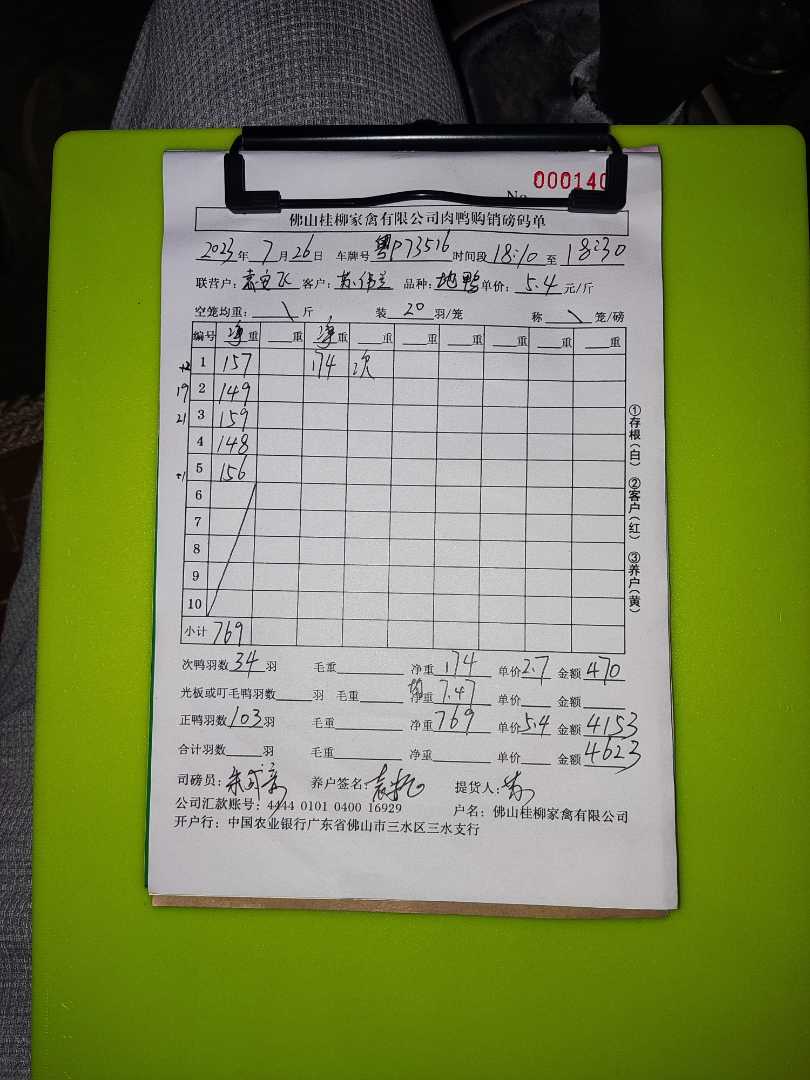 000140
佛山桂柳家禽有限公司肉鸭购销磅码单
2023年 7月26日 车牌号 粤P73516 时间段 18:10 至 18:30
联营户: 客户: 苏伟兰 品种: 地鸭 单价: 5.4 元/斤
空笼均重: \ 斤 装 20 羽/笼 称 \ 笼/磅
编号 净重 重 净重 重 重 重 重 重 重
+2 1 157 174 次
19 2 149
21 3 159
4 148
+1 5 156
6
7
8
9
10
小计 769
①存根(白) ②客户(红) ③养户(黄)
次鸭羽数 34 羽 毛重 净重 174 单价 2.7 金额 470
光板或叮毛鸭羽数 羽 毛重 均 净重 7.47 单价 金额
正鸭羽数 103 羽 毛重 净重 769 单价 5.4 金额 4153
合计羽数 羽 毛重 净重 单价 金额 4623
司磅员: 养户签名: 提货人:
公司汇款账号: 4444 0101 0400 16929 户名: 佛山桂柳家禽有限公司
开户行: 中国农业银行广东省佛山市三水区三水支行